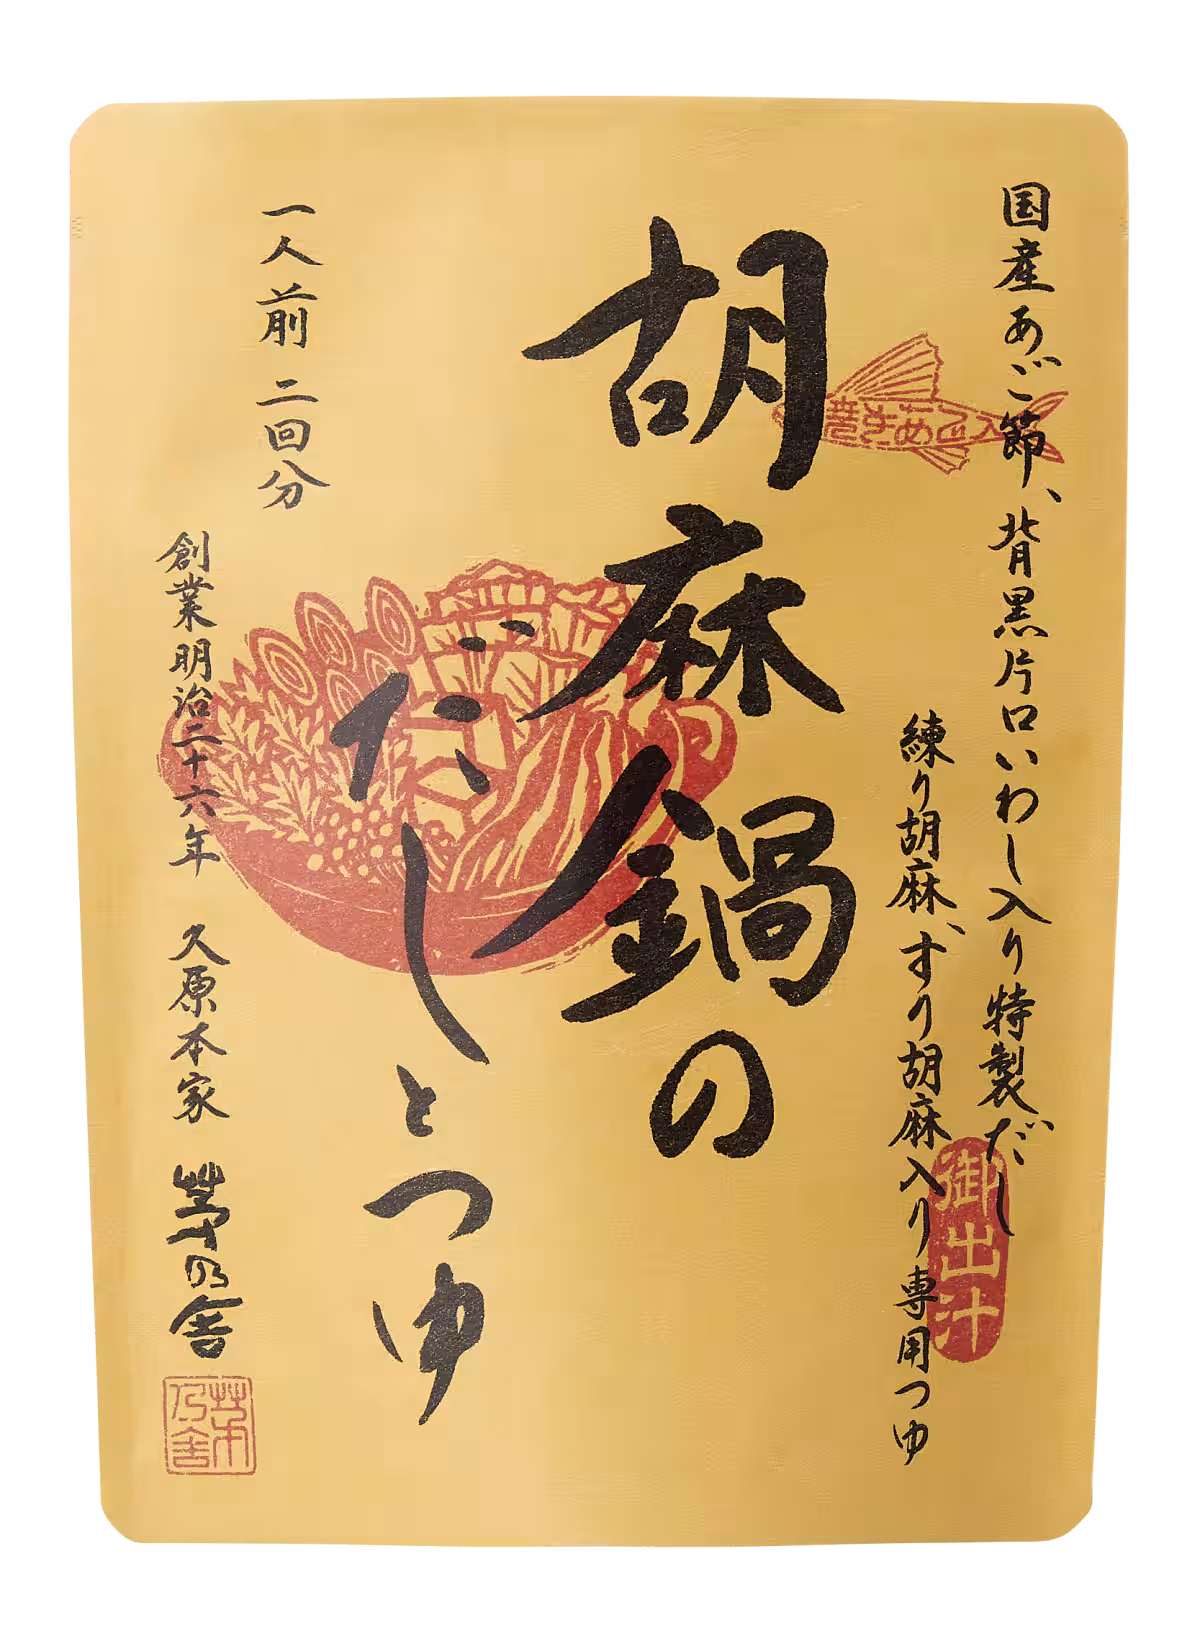 国産あご節、背黒片口いわし入り特製だし
練り胡麻、すり胡麻入り専用つゆ
御出汁
焼きあご入
胡麻鍋の
だしとつゆ
一人前 二回分
創業明治二十六年 久原本家 茅乃舎
茅乃舎